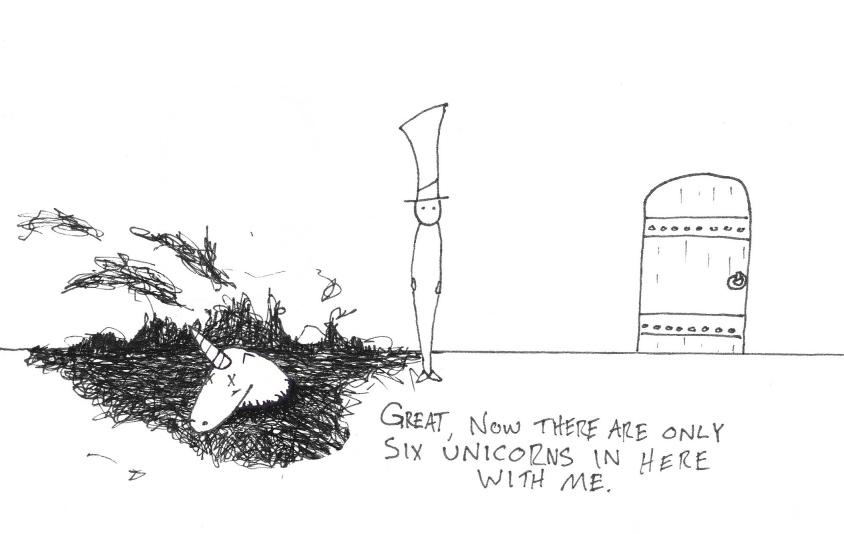 GREAT, NOW THERE ARE ONLY
SIX UNICORNS IN HERE
WITH ME.